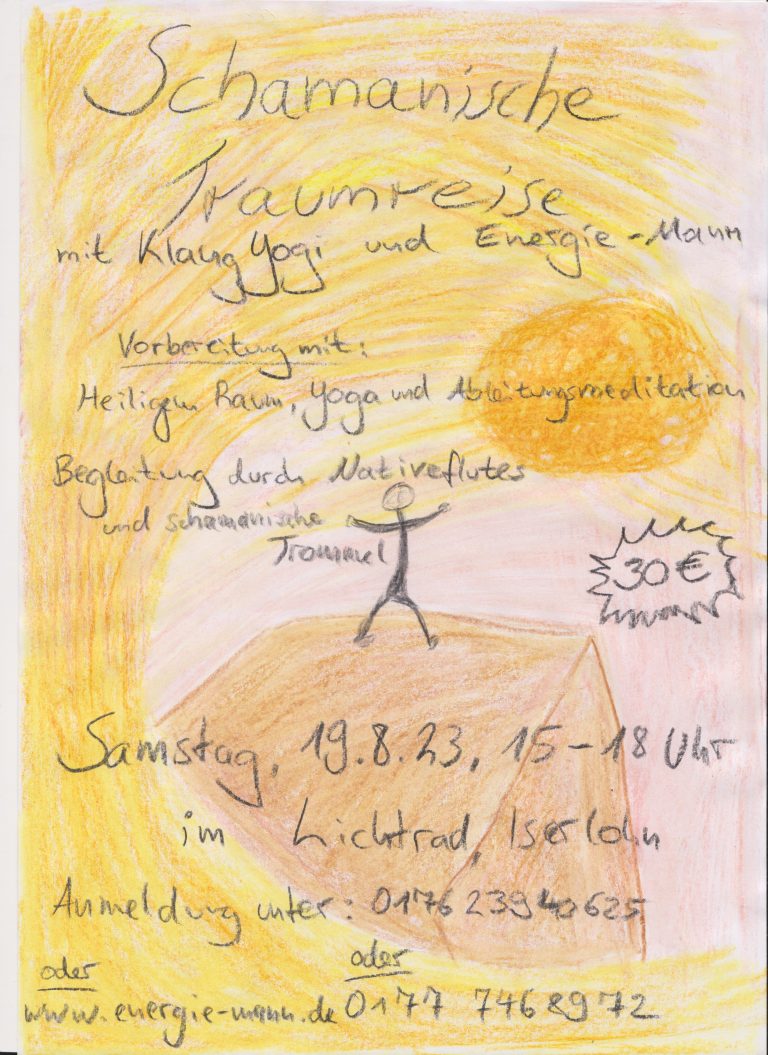 Schamanische
Traumreise
mit Klang Yogi und Energie-Mann
Vorbereitung mit:
Heiligem Raum, Yoga und Ableitungsmeditation
Begleitung durch Nativeflutes
und schamanische
Trommel
30 €
Samstag, 19.8.23, 15-18 Uhr
im Lichtrad, Iserlohn
Anmeldung unter: 0176 23940625
oder
oder
www.energie-mann.de 0177 7468972